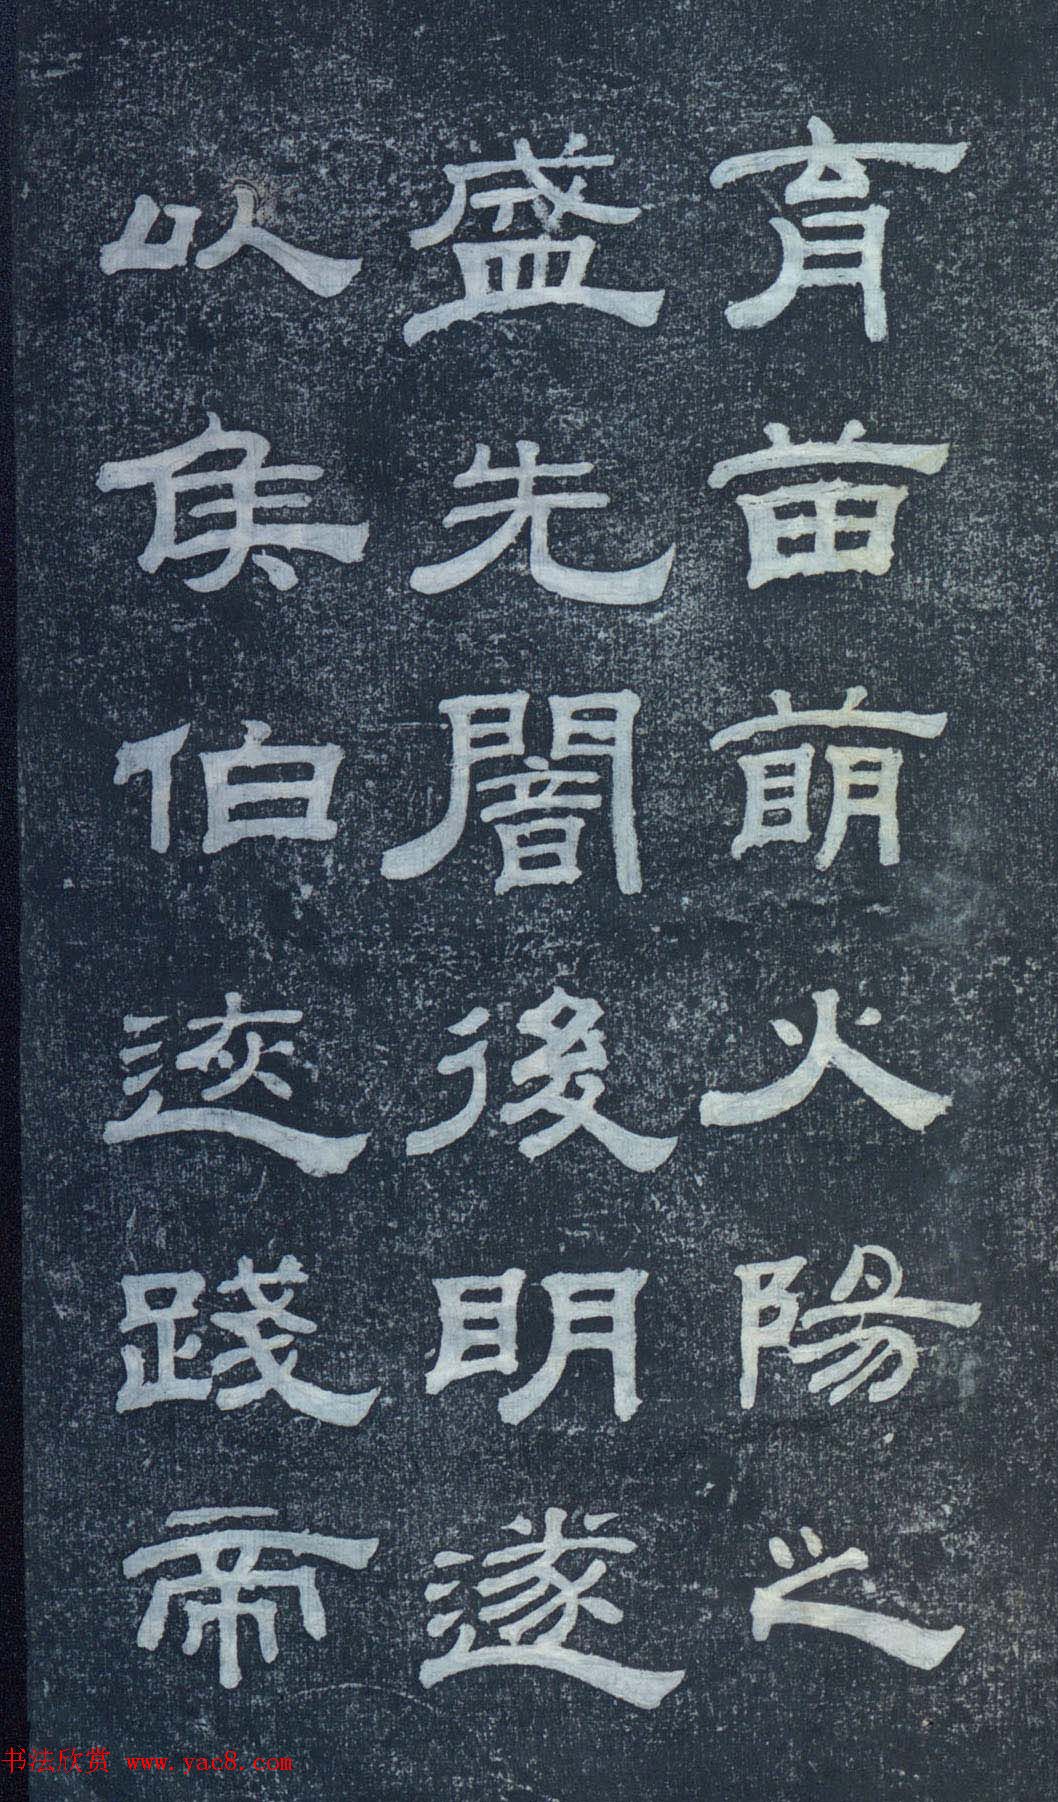 育苗萠火陽之
盛先闇後明遂
以侯伯遊踐帝
书法欣赏 www.yac8.com